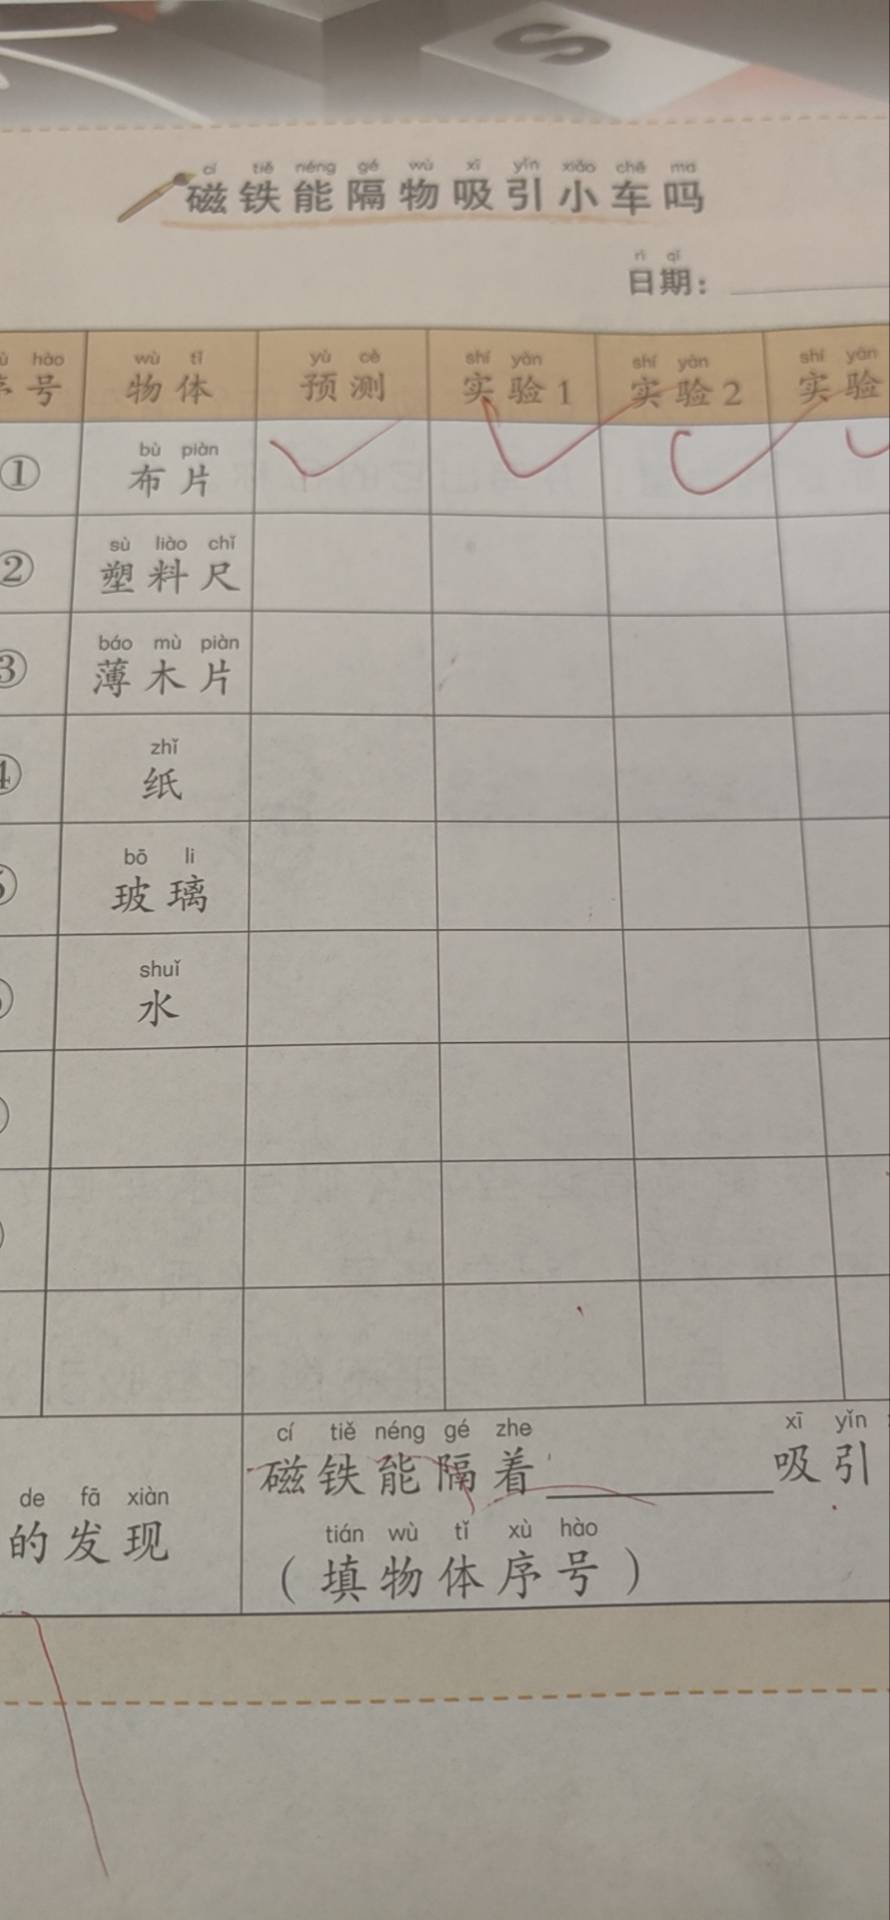 S
cí tiě néng gé wù xī yǐn xiǎo chē ma
磁铁能隔物吸引小车吗
rì qī
日期：
hào wù tǐ yù cè shí yàn shí yàn shí yàn
号 物体 预测 实验1 实验2 实验
bù piàn
① 布片
sù liào chǐ
② 塑料尺
báo mù piàn
③ 薄木片
zhǐ
④ 纸
bō li
⑤ 玻璃
shuǐ
水
cí tiě néng gé zhe xī yǐn
磁铁能隔着______吸引
de fā xiàn
的发现
tián wù tǐ xù hào
（填物体序号）